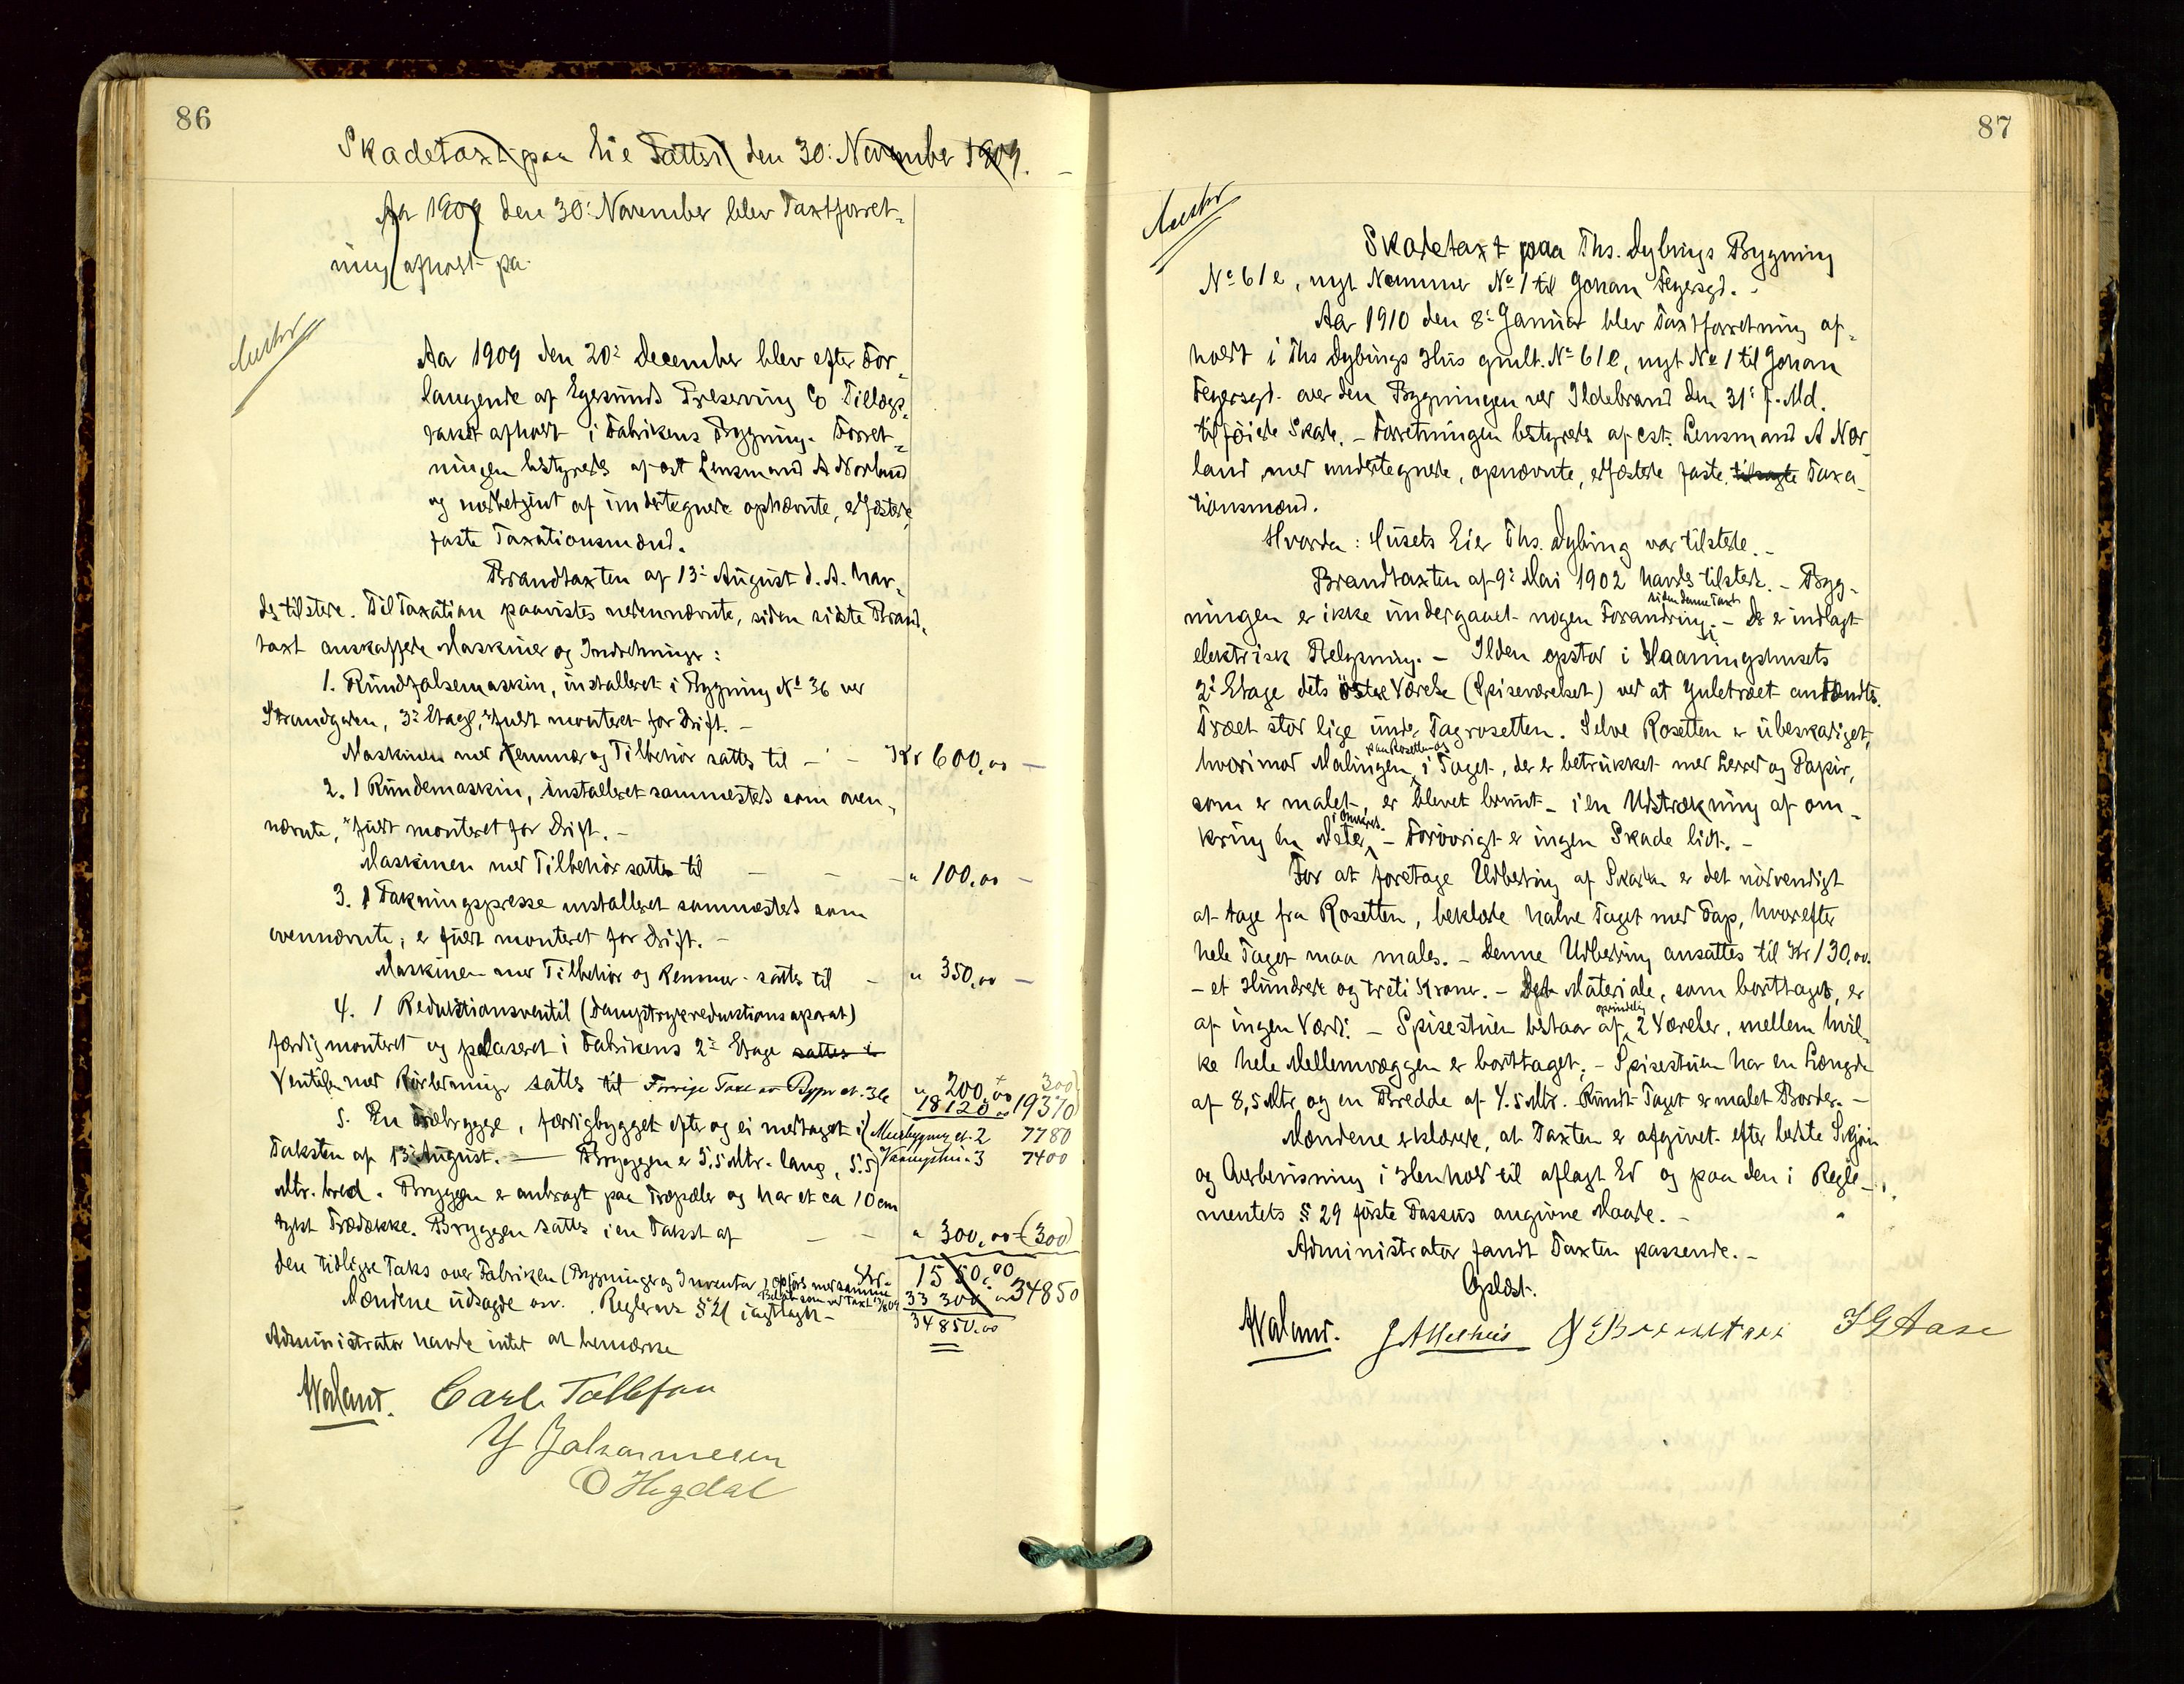 86
Skadetaxt paa Eie Tatters den 30: November 1909.
Aar 1909 den 30: November blev Taxtforret-
ning afholdt pa
Aar 1909 den 20: December blev efter For-
langende af Egersunds Preserving Co Tillægs-
takst afholdt i Fabrikens Bygning. Forret-
ningen bestyredes af cst Lensmand A Norland
og medbetjent af undertegnede opnævnte, edfæstede
faste Taxationsmænd.
Brandtaxten af 13: August d. A. hav-
des tilstede. Til Taxation paavistes nedennævnte, siden sidste Brand-
taxt anskaffede Maskiner og Indretninger:
1. Rundfalsemaskin, installeret i Bygning No 36 ved
Strandgaden, 3: Etage, fuldt monteret for Drift. -
Maskinen med Remmer og Tilbehør sattes til - - Kr 600,00 -
2. 1 Rundemaskin, installeret sammesteds som oven-
nævnte, fuldt monteret for Drift. -
Maskinen med Tilbehør sattes til - - - " 100,00 -
3. 1 Pakningspresse installeret sammesteds som
ovennævnte, er fuldt monteret for Drift. -
Maskinen med Tilbehør og Remmer sattes til - " 350,00 -
4. 1 Reduktionsventil (Damptrykreduktionsaparat)
færdig monteret og plaseret i Fabrikens 2: Etage sattes i
Ventilen med Rørledninger sattes til Forrige Taxt av Bygn et. 36 " 200,00 300
18120 19370
5. En Træbrygge, færdigbygget efter og ei medtaget i Musbygning et. 2 7780
Taksten af 13: August. - Bryggen er 5,5 Mtr. lang, 5,5 3 7400
Mtr. bred. Bryggen er anbragt paa Træpæler og har et ca 10 cm
tykt Trædække. Bryggen sattes i en Takst af - - " 300,00 (300)
Kr. 1550,00
den tidligre Takst over Fabriken (Bygninger og Inventar) opføres med samme
Beløb som ved Taxt 13/8 09 33 300 34850
Mændene udsagde osv. Reglernes § 21 iagttaget - 34850,00
Administrator havde intet at bemærke
Waland. Carl Tollefsen
Y Johannesen
O Hegdal
87
Skadetaxt paa Ths. Dybings Bygning
No 61e, nyt Nummer No 1 til Johan Feyersgd. -
Aar 1910 den 8: Januar blev Taxtforretning af-
holdt i Ths Dybings Hus gmlt. No 61e, nyt No 1 til Johan
Feyersgd. over den Bygningen ved Ildebrand den 31: f. Md.
tilføiede Skade. - Forretningen bestyredes af cst. Lensmand A Nor-
land med undertegnede, opnævnte, edfæstede faste, tilsagte Taxa-
tionsmænd.
Hvorda: Husets Eier Ths. Dybing var tilstede. -
Brandtaxten af 9: Mai 1902 havdes tilstede. - Byg-
siden denne Taxt
ningen er ikke undergaaet nogen Forandring. - Der er indlagt
elektrisk Belysning. - Ilden opstod i Vaaningshusets
2: Etage dets østre Værelse (Spiseværelset) ved at Juletræet antændtes.
Træet stod lige under Tagrosetten. Selve Rosetten er ubeskadiget,
paa Rosetten og
hvorimod Malingen i Taget, der er betrukket med Lerred og Papir,
som er malet, er blevet brunt - i en Udstrækning af om-
i Omkreds.
kring en Meter - Forøvrigt er ingen Skade lidt. -
For at foretage Udbedring af Skaden er det nødvendigt
at tage fra Rosetten, beklæde halve Taget med Pap, hvorefter
hele Taget maa males. - Denne Udbedring ansattes til Kr 130,00.
- et Hundrede og treti Kroner. - Det Materiale, som borttages, er
oprindelig
af ingen Værdi. - Spisestuen bestaar af 2 Værelser, mellem hvil-
ke hele Mellemvæggen er borttaget. - Spisestuen har en Længde
af 8,5 Mtr og en Bredde af 4.5 Mtr. Rundt Taget er malet Border. -
Mændene erklærede, at Taxten er afgivet efter bedste Skjøn
og Overbevisning i Henhold til aflagt Ed og paa den i Regle-
mentets § 29 første Passus angivne Maade. -
Administrator fandt Taxten passende. -
Oplæst.
Waland. J A Melhus J G Aase